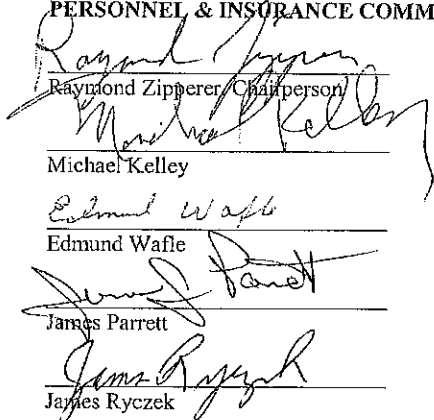 PERSONNEL & INSURANCE COMM
Raymond Zipperer
Raymond Zipperer, Chairperson
Michael Kelley
Michael Kelley
Edmund Wafle
Edmund Wafle
James J Parrett
James Parrett
James Ryczek
James Ryczek